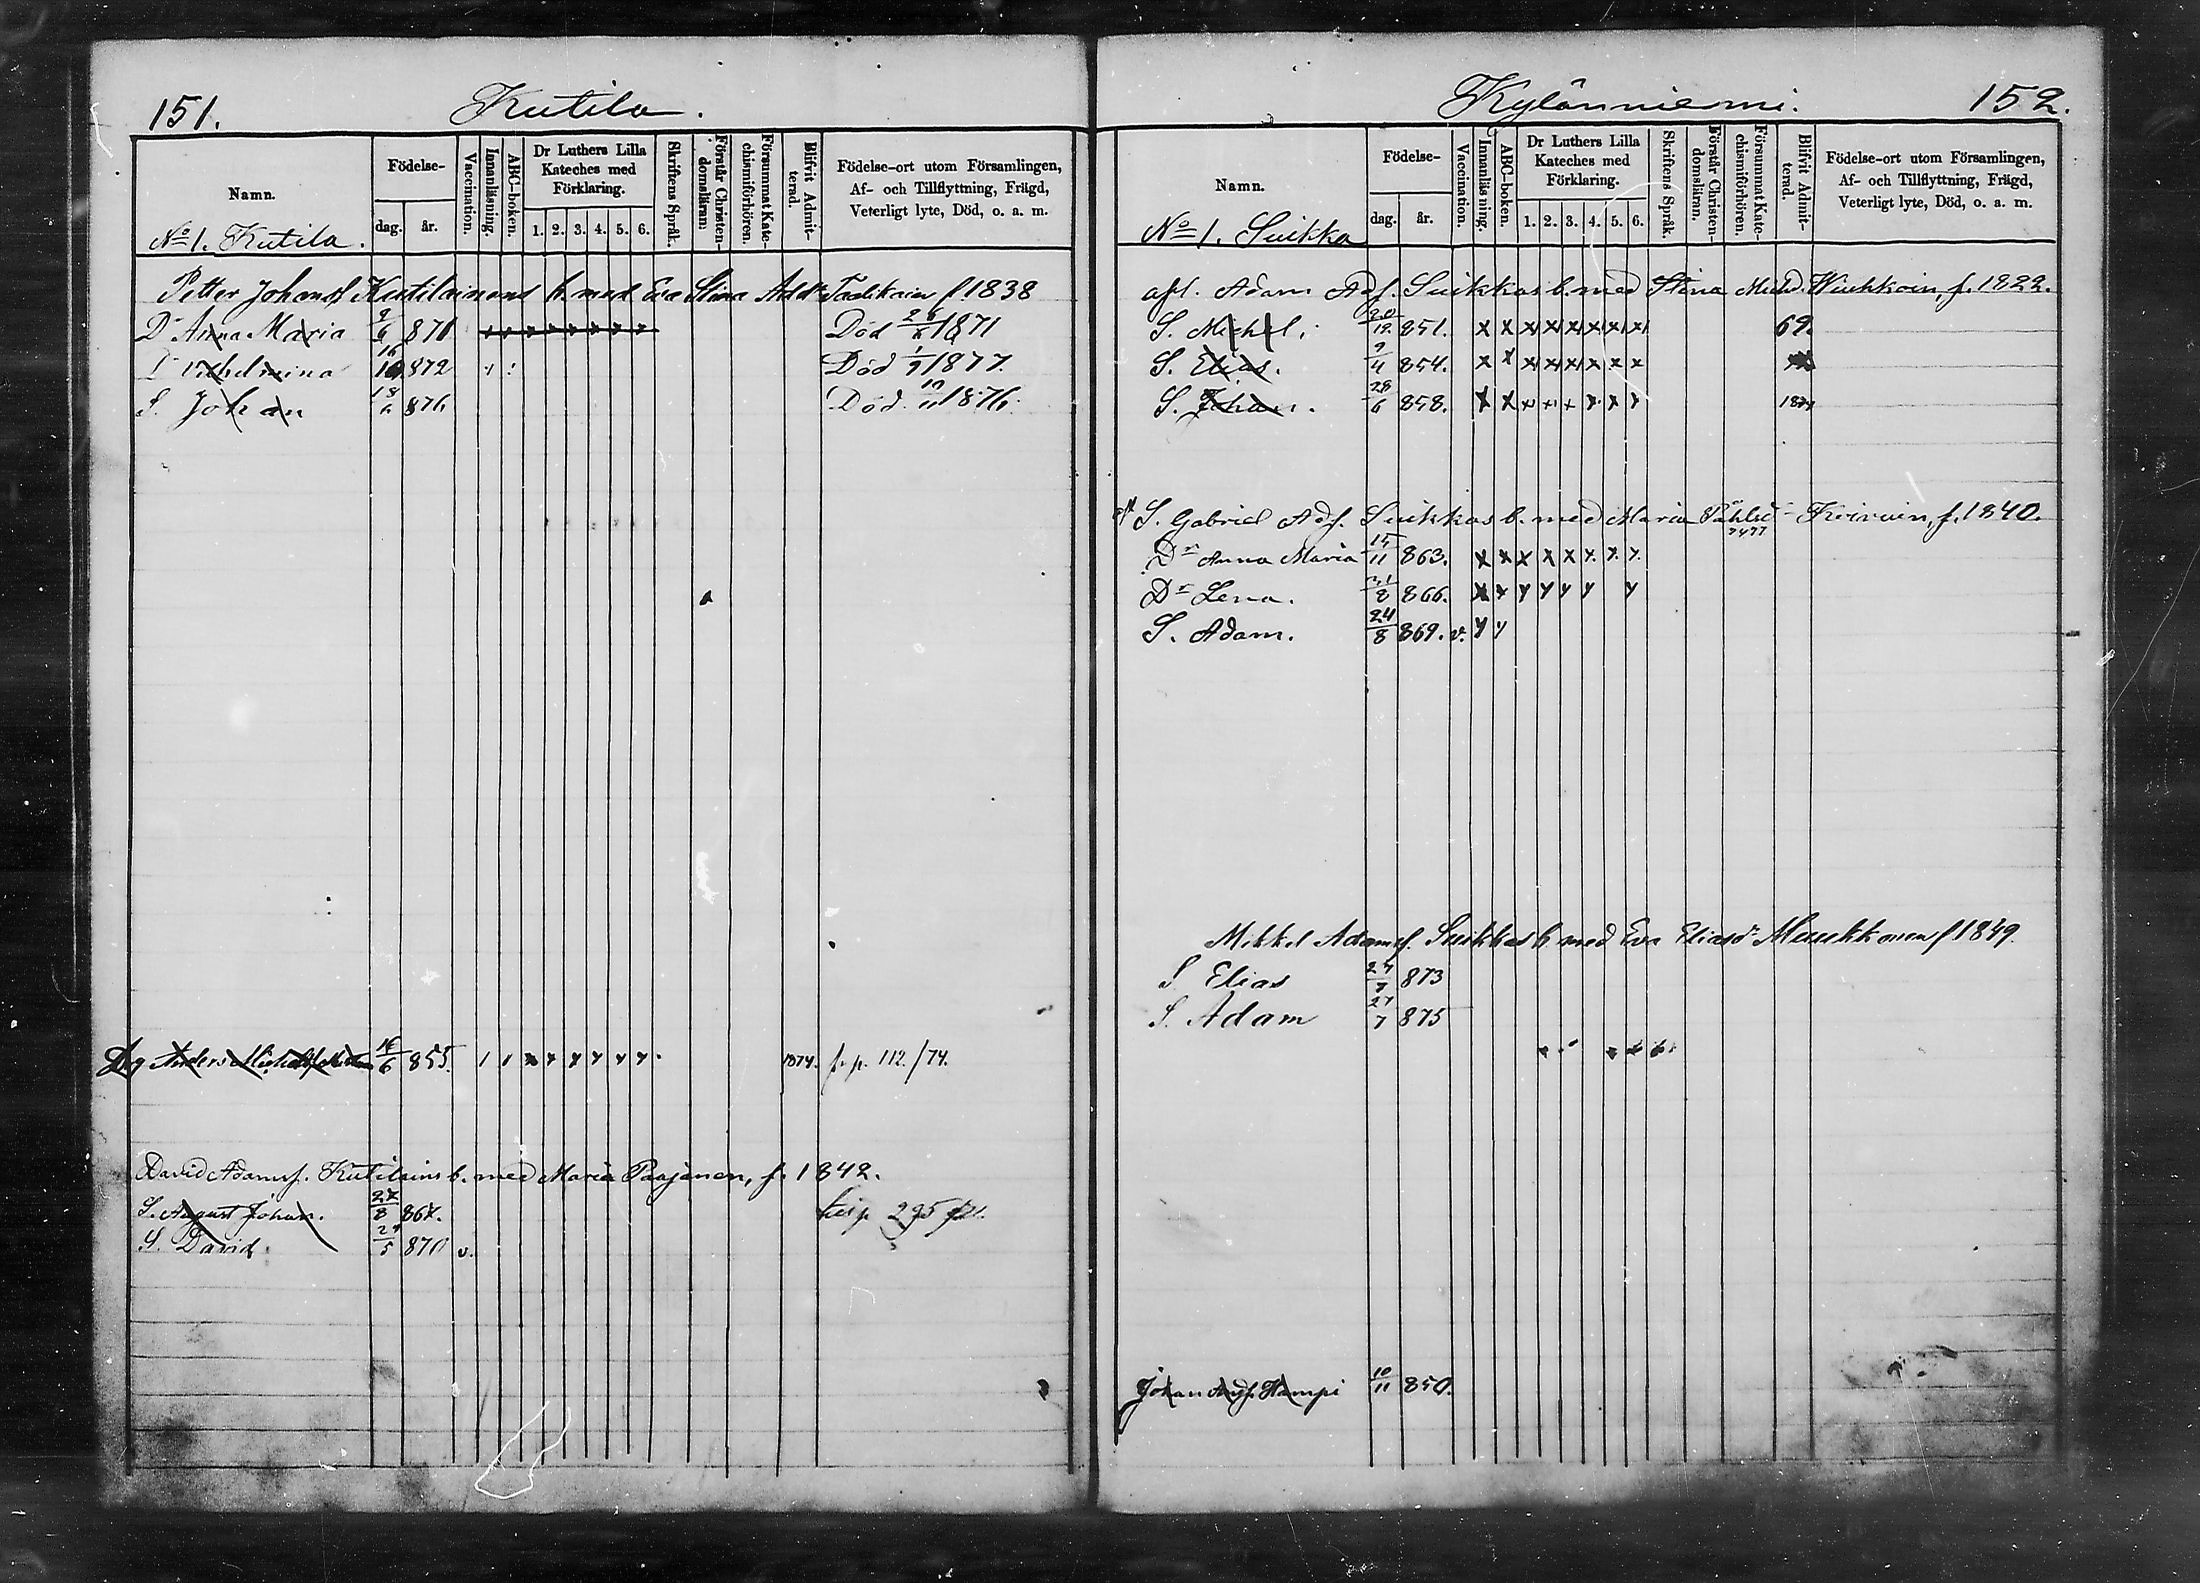 151.
Kutila.
Namn.
Födelse-
dag. år.
Vaccination.
Innanläsning.
ABC-boken.
Dr Luthers Lilla Kateches med Förklaring.
1. 2. 3. 4. 5. 6.
Skriftens Språk.
Förstår Christendomsläran.
Försummat Katechismiförhören.
Blifvit Admitterad.
Födelse-ort utom Församlingen,
Af- och Tillflyttning, Frägd,
Veterligt lyte, Död, o. a. m.
No 1. Kutila.
Petter Johansf Kutilainens b. med Eva Stina f 1838
Dr Anna Maria 871 Död 1871
Dr Vilhelmina 872 Död 1/9 1877.
S. Johan 18/6 876 Död 1876.
Anders 855. 1874. fr. p. 112./74.
David Adamsf. Kutilains b. med Maria Paajanen, f. 1842.
S. August Johan. 295
S. David. 870 v.
152.
Kylänniemi.
Namn.
Födelse-
dag. år.
Vaccination.
Innanläsning.
ABC-boken.
Dr Luthers Lilla Kateches med Förklaring.
1. 2. 3. 4. 5. 6.
Skriftens Språk.
Förstår Christendomsläran.
Försummat Katechismiförhören.
Blifvit Admitterad.
Födelse-ort utom Församlingen,
Af- och Tillflyttning, Frägd,
Veterligt lyte, Död, o. a. m.
No 1. Suikka
afl. Adam Adf. Suikkas b. med Stina f. 1822.
S. Michel. 20/12 851. x x x x x x x x 69.
S. Elias. 9/4 854. x x x x x x x x
S. Johan. 28/6 858. x x x x x x x x
S. Gabriel Adf. Suikkas b. med Maria f. 1840.
Dr Anna Maria 15/11 863. x x x x x x x x
Dr Lena. 866.
S. Adam. 24/8 869. v.
Mikkel Adamsf. Suikkas b. med Eva Eliasdr f 1849.
S Elias 873
S. Adam 27/7 875
Johan Andf. Hampi 10/11 850.